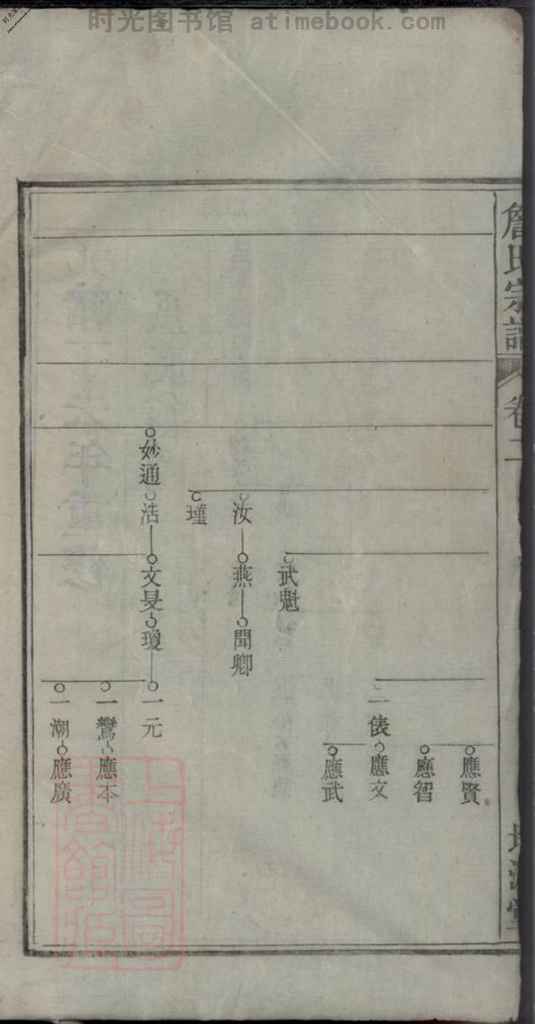 时光图书馆 atimebook.com
詹氏宗譜
卷二
應賢
應智
一俵 應文
應武
武魁
汝 燕 聞卿
瑾
妙通 浩 文旻 瓊 一元
一鸞 應本
一潮 應廣